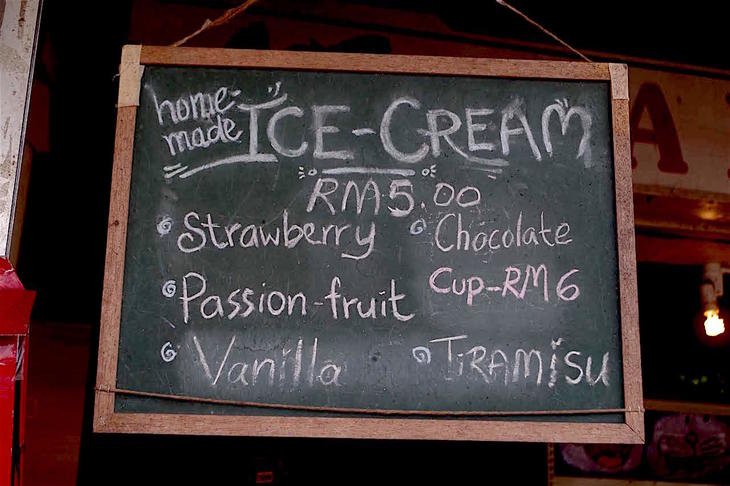 home-made ICE-CREAM
RM5.00
Strawberry
Chocolate
Passion-fruit
Cup-RM6
Vanilla
TiRAMiSU
A